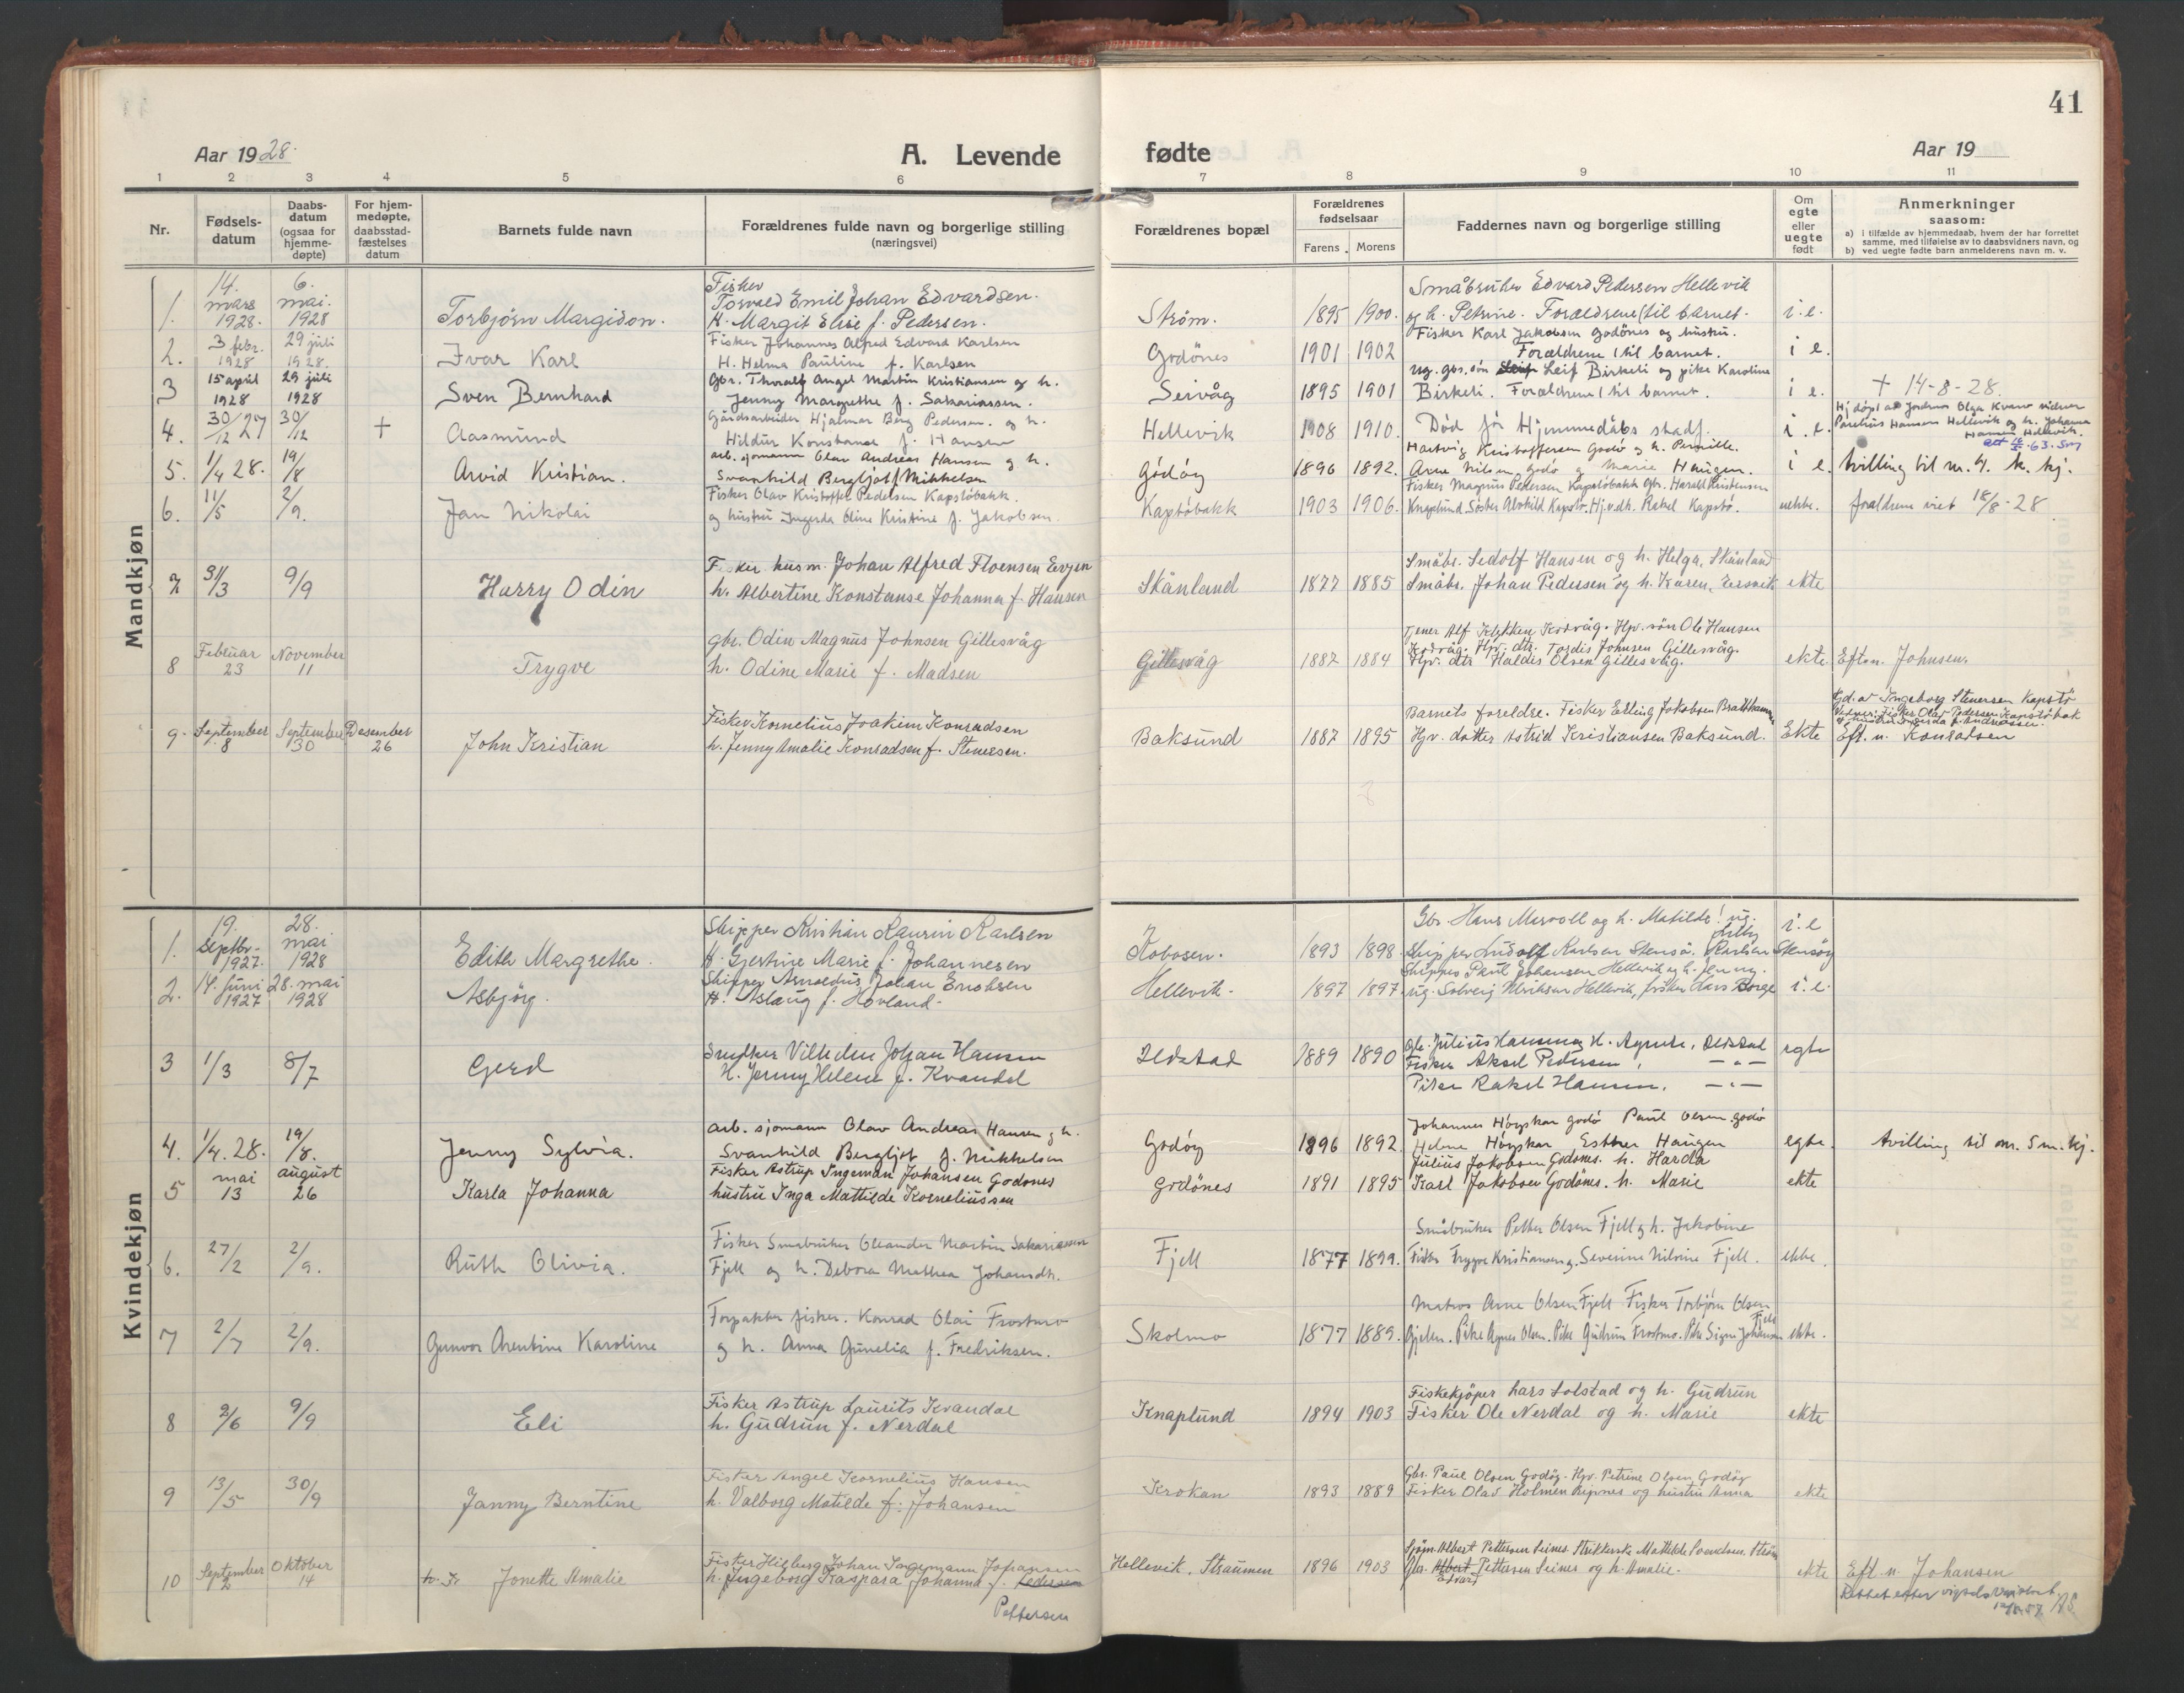 41
Aar 1928.
A. Levende fødte
Aar 19
1 2 3 4 5 6 7 8 9 10 11
Nr.
Fødsels-
datum
Daabs-
datum
(ogsaa for
hjemme-
døpte)
For hjem-
medøpte,
daabsstad-
fæstelses
datum
Barnets fulde navn
Forældrenes fulde navn og borgerlige stilling
(næringsvei)
Forældrenes bopæl
Forældrenes
fødselsaar
Farens. Morens
Faddernes navn og borgerlige stilling
Om
egte
eller
uegte
født
Anmerkninger
saasom:
a) i tilfælde av hjemmedaab, hvem der har forrettet
samme, med tilføielse av to daabsvidners navn, og
b) ved uegte fødte barn anmelderens navn m. v.
Mandkjøn
1. 14. mars 1928. 6. mai. 1928 Torbjørn Margidon.
Fisker
Torvald Emil Johan Edvardsen.
H. Margit Elise f. Pedersen.
Strøm. 1895 1900.
Småbruker Edvard Pedersen Hellevik
og h. Petrine. Forældrene til barnet. i.e.
2. 3 febr. 1928 29 juli 1928. Ivar Karl
Fisker Johannes Alfred Edvard Karlsen
H. Helma Pauline f. Karlsen
Godönes 1901 1902
Fisker Karl Jakobsen Godönes og hustru.
Forældrene til barnet. i e.
3 15 april 1928 29 juli 1928 Sven Bernhard
Gbr. Thoralf Angel Martin Kristiansen og h.
Jenny Margrethe f. Sakariassen.
Seivåg 1895 1901
Ug. gbr. søn Leif Birkeli og pike Karoline
Birkeli. Forældrene til barnet. i e. † 14-8-28.
4. 30/12 27 30/12 † Aasmund
Gårdsarbeider Hjalmar Berg Pedersen. og h.
Hildur Konstanse f. Hansen
Hellevik 1908 1910.
Død før Hjemmedåbs stadf. i. e.
Hj døpt av Jordmor Olga Kvanø vidner
Paulius Hansen Hellevik og h. Johanna
Hansen Hellevik.
5. 1/4 28. 19/8 Arvid Kristian.
arb. sjomann Olav Andreas Hansen og h.
Svanhild Bergljot f Mikkelsen
Gódöy 1896 1892.
Hartvig Kristoffersen Godø og h. Pernille.
Arne Nilsen Godø og Marie Haugen. i e. tvilling til nr. 4. k. kj.
6. 11/5 2/9. Jan Nikolai
Fisker Olav Kristoffer Pedersen Kapstöbakk.
og hustru Ingerda Oline Kristine f. Jakobsen.
Kapstöbakk 1903 1906.
Fisker Magnus Pedersen Kapstöbakk Gbr. Harald Kristensen
Knaplund. Söster Alvhild Kapstö. Hj.v.dh. Rakel Kapstö. uekte. foraldrene viet 18/8-28
7 31/3 9/9 Harry Odin
Fisker husm. Johan Alfred Floensen Evjen
h. Albertine Konstanse Johanna f. Hansen
Skånland 1877 1885
Småbr. Sedolf Hansen og h. Helga, Skånland
Småbr. Johan Pedersen og h. Karen, Eersvik ekte
8 Februar 23 November 11 Trygve
gbr. Odin Magnus Johnsen Gillesvåg
h. Odine Marie f. Madsen
Gillesvåg 1887 1884
Tjener Alf Klykken Kodvåg. Hpv. sön Ole Hansen
Kodvåg. Hpv. dtr. Tordis Johnsen Gillesvåg.
Hpv. dtr Haldis Olsen Gillesvåg. ekte Eftn. Johnsen.
9. September 8 September 30 Desember 26 John Kristian
Fisker Kornelius Joakim Konradsen
h. Jenny Amalie Konradsen f. Stenersen.
Baksund 1887 1895
Barnets foreldre. Fisker Erling Jakobsen Bratthammer
Hjv. datter Astrid Kristiansen Baksund. Ekte
Hjd. av Ingeborg Stenersen Kapstö
Vidner: Fisker Olav Pedersen Kapstöbak
og hustru Ingerda f. Andreassen.
Eft. n. Konradsen
Kvindekjøn
1. 19. Septbr. 1927. 28. mai 1928 Edith Margrethe.
Skipper Kristian Laurin Karlsen
H. Gjertine Marie f. Johannesen
Kobosen. 1893 1898.
Gbr. Hans Mevoll og h. Matilde! ug.
Skipper Ludolf Karlsen Stensö. Karlsen Stensöy i.e
2. 14. juni 1927 28. mai 1928 Asbjørg.
Skipper Arnoldus Johan Enoksen
H. Aslaug f. Hovland.
Hellevik. 1897 1897.
Skipper Paul Johansen Hellevik og h. Jenny.
ug. Solveig Ulriksen Hellevik, frøken Lars Borge i.e.
3 1/3 8/7 Gerd
Snedker Vilhelm Johan Hansen
H. Jenny Helene f. Kvandal
Ildstad 1889 1890
gbr. Julius Hansen og H. Agnete, Ildstad
Fisker Aksel Pedersen, — „ —
Pike Rakel Hansen, — „ — egte
4. 1/4. 28. 19/8. Jenny Sylvia.
arb. sjomann Olav Andreas Hansen og h.
Svanhild Bergljot f. Mikkelsen
Godöy 1896 1892.
Johannes Höyskar godö Paul Olsen godö
Helene Höyskar Esther Haugen egte. tvilling til nr. 5 m. kj.
5 mai 13 august 26 Karla Johanna
Fisker Astrup Ingeman Johansen Godønes
hustru Inga Mattilde Korneliussen
Godönes 1891 1895
Julius Jakobsen Godönes. h. Harda
Karl Jakobsen Godönes. h. Marie ekte
6. 27/2 2/9. Ruth Olivia.
Fisker Småbruker Oleander Martin Sakariassen
Fjell og h. Debora Mathea Johansdtr.
Fjell 1877 1899.
Småbruker Petter Olsen Fjell og h. Jakobine
Fisker Trygve Kristiansen og Severine Nilsine Fjell. ekte.
7 2/7 2/9. Gunvor Arentine Karoline
Forpakter fisker. Konrad Olai Frostmo
og h. Anna Gunelia f. Fredriksen.
Skolmo 1877 1889.
Matros Arne Olsen Fjell Fisker Torbjørn Olsen
Fjell
Gjelen. Pike Agnes Olsen. Pike Gudrun Frostmo. Pike Signe Johansen ekte.
8 2/6 9/9 Eli
Fisker Astrup Laurits Kvandal
h. Gudrun f. Nerdal
Knaplund 1894 1903
Fiskekjöper Lars Solstad og h. Gudrun
Fisker Ole Nerdal og h. Marie ekte
9 13/5 30/9 Janny Berntine
Fisker Angel Kornelius Hansen
h. Valborg Matilde f. Johansen
Krokan 1893 1889
Gbr. Paul Olsen Godöy. Hpv. Petrine Olsen Godöy
Fisker Olav Holmen Reipnes og hustru Anna ekte
10 September 2 Oktober 14 Jonette Amalie
Fisker Hilberg Johan Ingemann Johansen
h. Ingeborg Kaspara Johanna f. Pedersen
Pettersen
Hellevik, Straumen 1896 1903
Sjöm. Albert Pettersen Seines. Strikkerske Mathilde Svendsen. Ström
Gbr. Albert Pettersen Seines og h. Amalie.
Edvart
ekte Eft. n. Johansen
Rettet efter vigselsattest